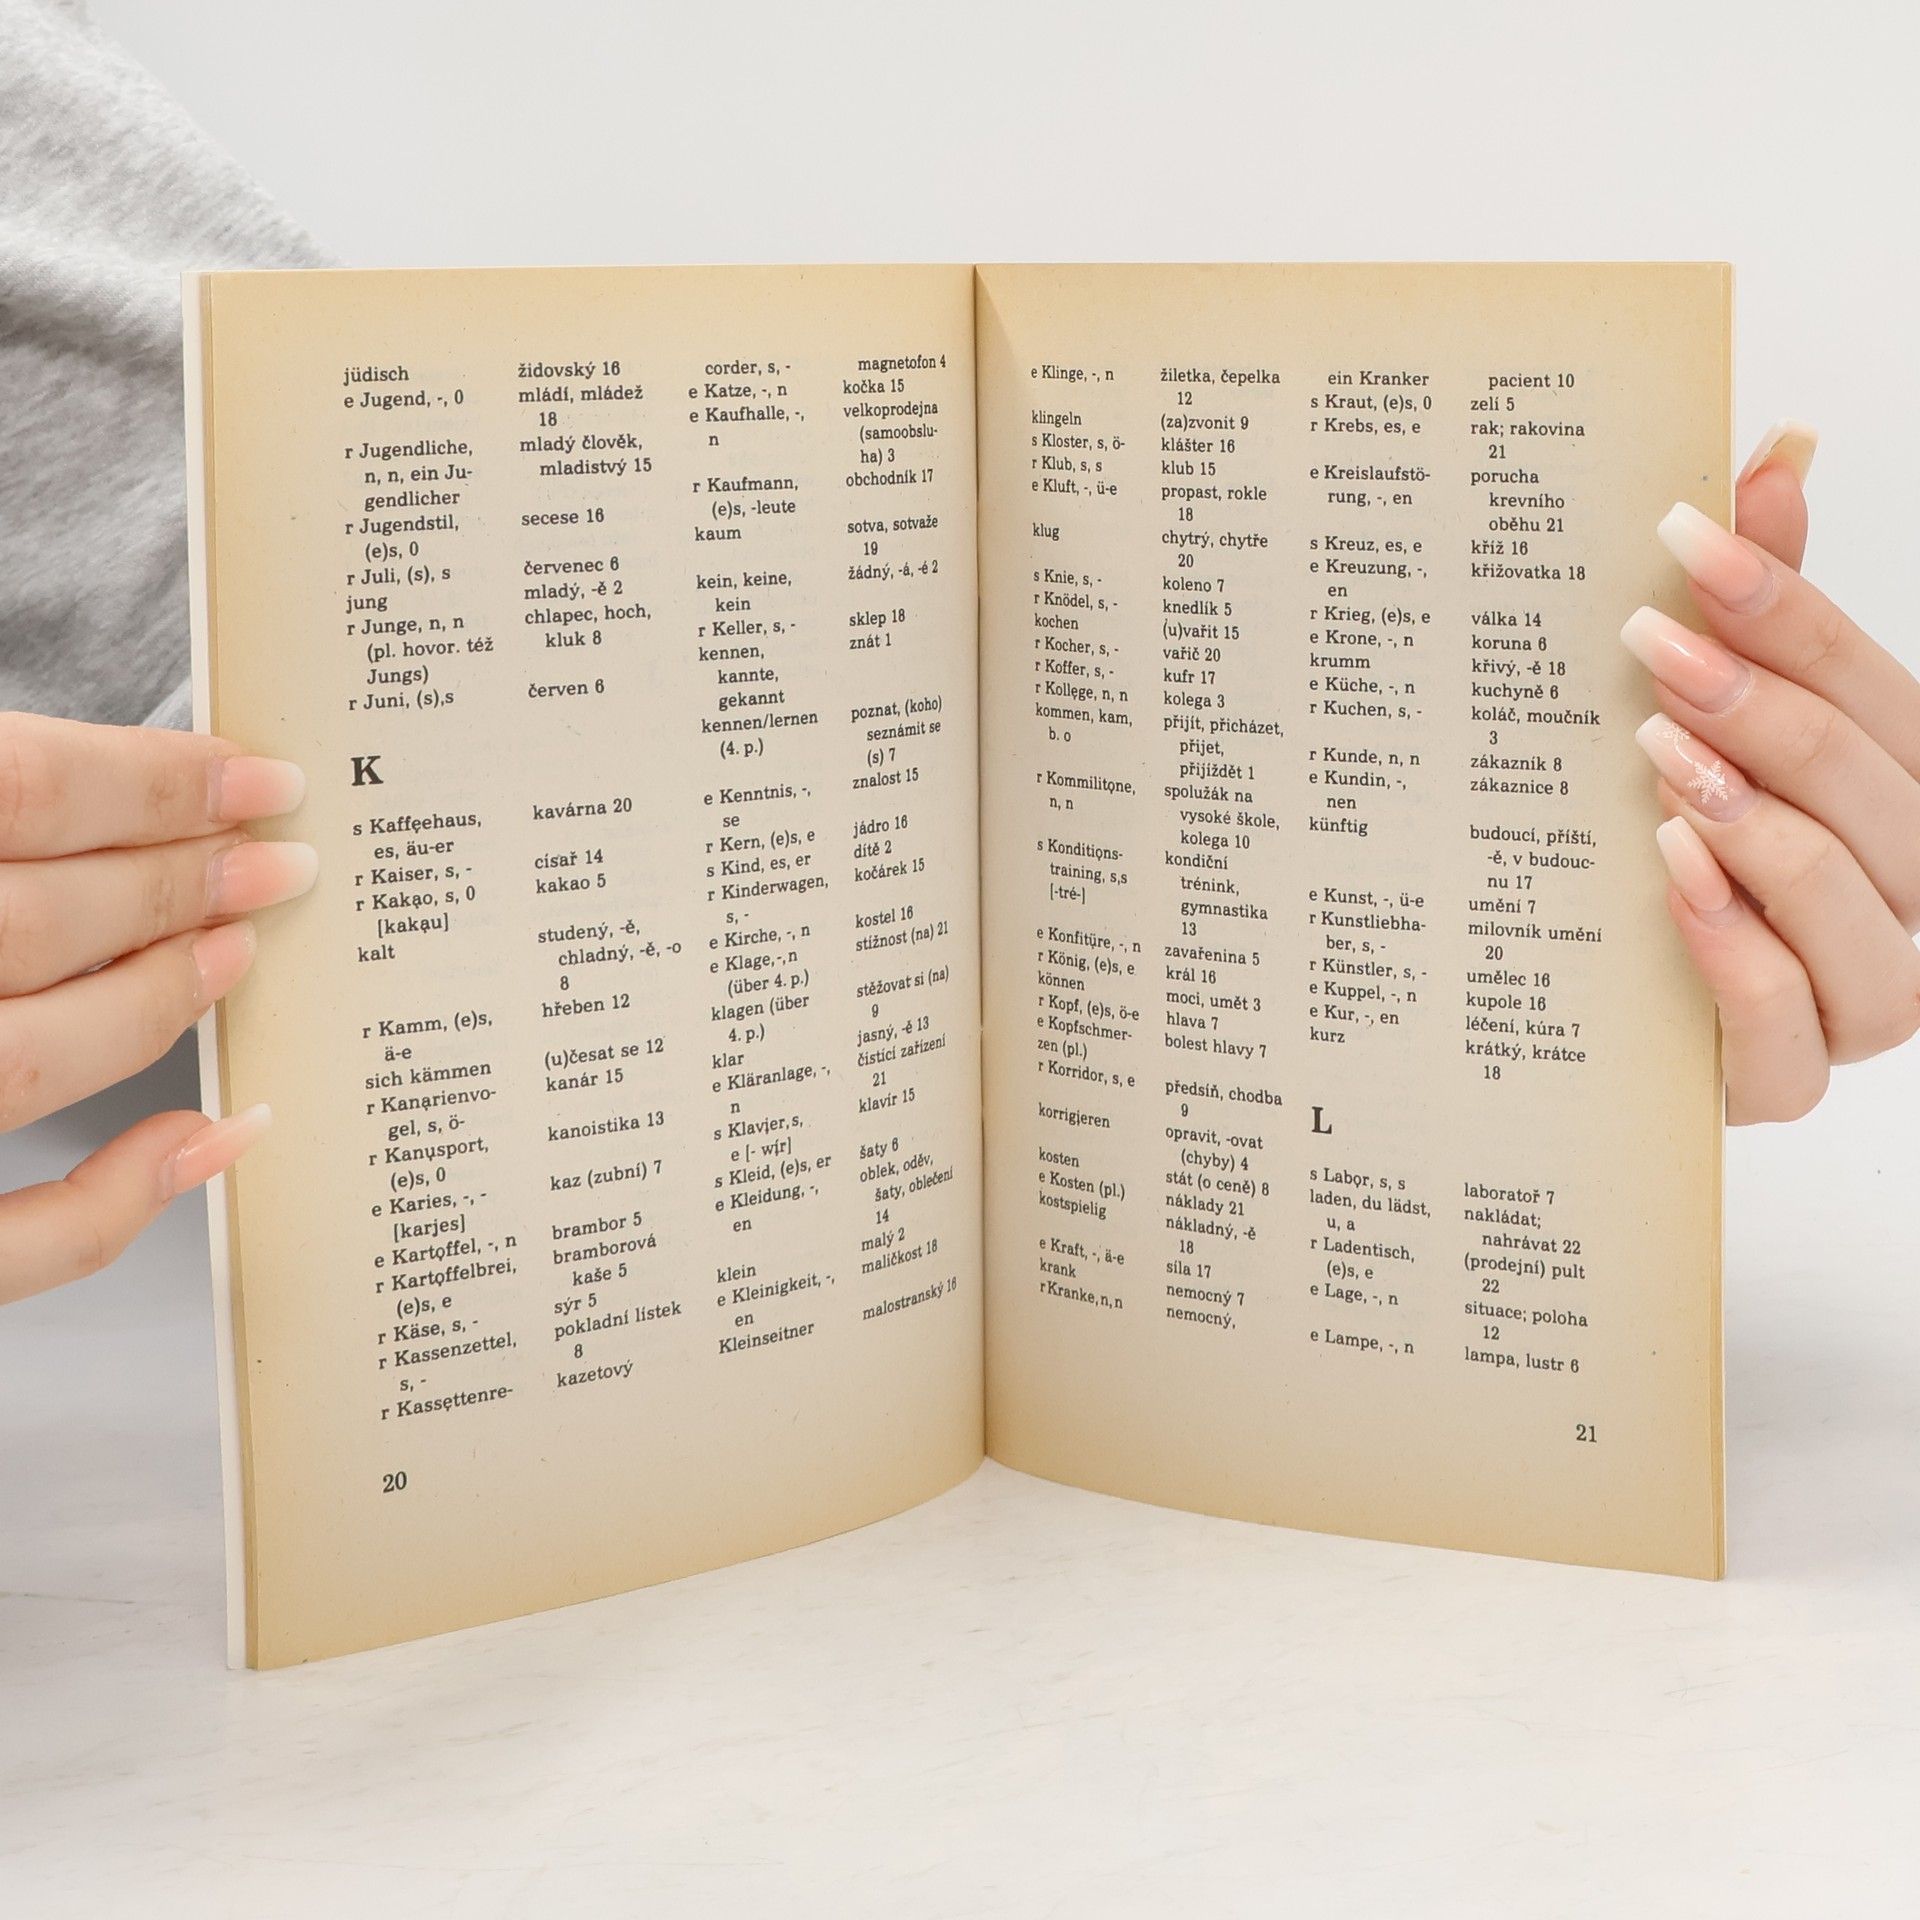 jüdisch židovský 16
e Jugend, -, 0 mládí, mládež
18
r Jugendliche, mladý člověk,
n, n, ein Ju- mladistvý 15
gendlicher
r Jugendstil, secese 16
(e)s, 0
r Juli, (s), s červenec 6
jung mladý, -ě 2
r Junge, n, n chlapec, hoch,
(pl. hovor. též kluk 8
Jungs)
r Juni, (s),s červen 6
K
s Kaffęehaus, kavárna 20
es, äu-er
r Kaiser, s, - císař 14
r Kakąo, s, 0 kakao 5
[kakąu]
kalt studený, -ě,
chladný, -ě, -o
8
r Kamm, (e)s, hřeben 12
ä-e
sich kämmen (u)česat se 12
r Kanąrienvo- kanár 15
gel, s, ö-
r Kanųsport, kanoistika 13
(e)s, 0
e Karies, -, - kaz (zubní) 7
[karjes]
e Kartǫffel, -, n brambor 5
r Kartǫffelbrei, bramborová
(e)s, e kaše 5
r Käse, s, - sýr 5
r Kassenzettel, pokladní lístek
s, - 8
r Kassęttenre- kazetový
corder, s, - magnetofon 4
e Katze, -, n kočka 15
e Kaufhalle, -, velkoprodejna
n (samoobslu-
ha) 3
r Kaufmann, obchodník 17
(e)s, -leute
kaum sotva, sotvaže
19
kein, keine, žádný, -á, -é 2
kein
r Keller, s, - sklep 18
kennen, znát 1
kannte,
gekannt
kennen/lernen poznat, (koho)
(4. p.) seznámit se
(s) 7
e Kenntnis, -, znalost 15
se
r Kern, (e)s, e jádro 16
s Kind, es, er dítě 2
r Kinderwagen, kočárek 15
s, -
e Kirche, -, n kostel 16
e Klage,-,n stížnost (na) 21
(über 4. p.)
klagen (über stěžovat si (na)
4. p.) 9
klar jasný, -ě 13
e Kläranlage, -, čistící zařízení
n 21
s Klavįer,s, klavír 15
e [- wįr]
s Kleid, (e)s, er šaty 6
e Kleidung, -, oblek, oděv,
en šaty, oblečení
14
klein malý 2
e Kleinigkeit, -, maličkost 18
en
Kleinseitner malostranský 16
20
e Klinge, -, n žiletka, čepelka
12
klingeln (za)zvonit 9
s Kloster, s, ö- klášter 16
r Klub, s, s klub 15
e Kluft, -, ü-e propast, rokle
18
klug chytrý, chytře
20
s Knie, s, - koleno 7
r Knödel, s, - knedlík 5
kochen (u)vařit 15
r Kocher, s, - vařič 20
r Koffer, s, - kufr 17
r Kollęge, n, n kolega 3
kommen, kam, přijít, přicházet,
b. o přijet,
přijíždět 1
r Kommilitǫne, spolužák na
n, n vysoké škole,
kolega 10
s Konditiǫns- kondiční
training, s,s trénink,
[-tré-] gymnastika
13
e Konfitüre, -, n zavařenina 5
r König, (e)s, e král 16
können moci, umět 3
r Kopf, (e)s, ö-e hlava 7
e Kopfschmer- bolest hlavy 7
zen (pl.)
r Korridor, s, e předsíň, chodba
9
korrigįeren opravit, -ovat
(chyby) 4
kosten stát (o ceně) 8
e Kosten (pl.) náklady 21
kostspielig nákladný, -ě
18
e Kraft, -, ä-e síla 17
krank nemocný 7
r Kranke,n,n nemocný,
ein Kranker pacient 10
s Kraut, (e)s, 0 zelí 5
r Krebs, es, e rak; rakovina
21
e Kreislaufstö- porucha
rung, -, en krevního
oběhu 21
s Kreuz, es, e kříž 16
e Kreuzung, -, křižovatka 18
en
r Krieg, (e)s, e válka 14
e Krone, -, n koruna 6
krumm křivý, -ě 18
e Küche, -, n kuchyně 6
r Kuchen, s, - koláč, moučník
3
r Kunde, n, n zákazník 8
e Kundin, -, zákaznice 8
nen
künftig budoucí, příští,
-ě, v budouc-
nu 17
e Kunst, -, ü-e umění 7
r Kunstliebha- milovník umění
ber, s, - 20
r Künstler, s, - umělec 16
e Kuppel, -, n kupole 16
e Kur, -, en léčení, kúra 7
kurz krátký, krátce
18
L
s Labǫr, s, s laboratoř 7
laden, du lädst, nakládat;
u, a nahrávat 22
r Ladentisch, (prodejní) pult
(e)s, e 22
e Lage, -, n situace; poloha
12
e Lampe, -, n lampa, lustr 6
21